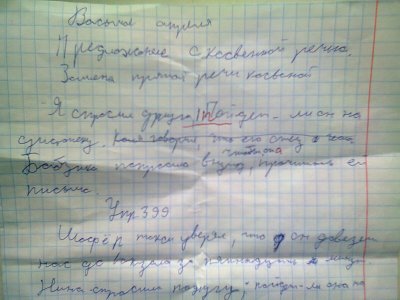 Восьмое апреля
Предложение с косвенной речью.
Замена прямой речи косвенной
Я спросил друга, Пойдёт-ли он на
Коля говорил, что его отец
чтобы она
Бабушка попросила внука, прочитать ей
письмо.
Упр 399
Шофёр такси уверял, что он довезёт
нас до вокзала за пятнадцать минут.
Нина спросила подругу, пойдёт-ли она на